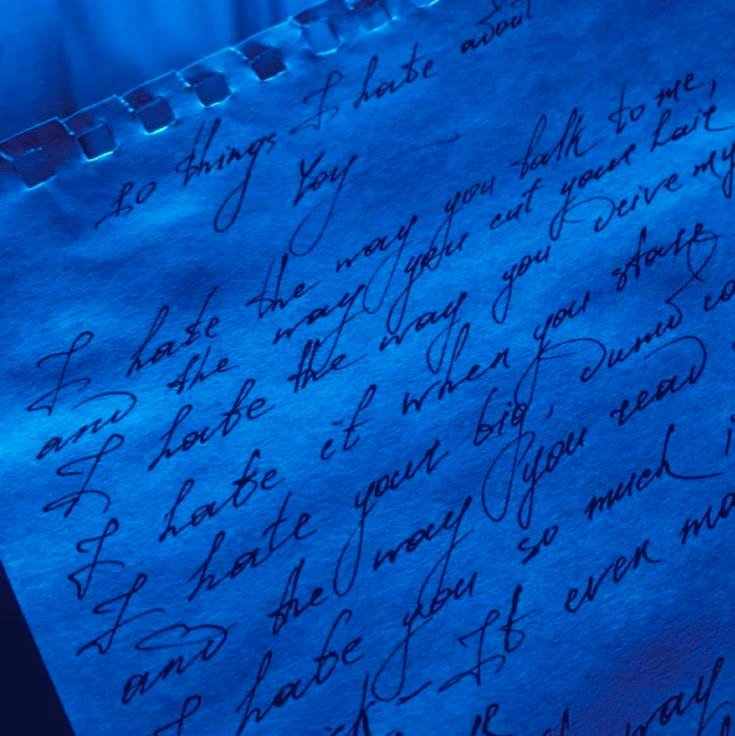 10 things I hate about
You
I hate the way you talk to me,
and the way you cut your hair
I hate the way you drive my
I hate it when you stare
I hate your big, dumb co
and the way you read
I hate you so much i
It even ma
way